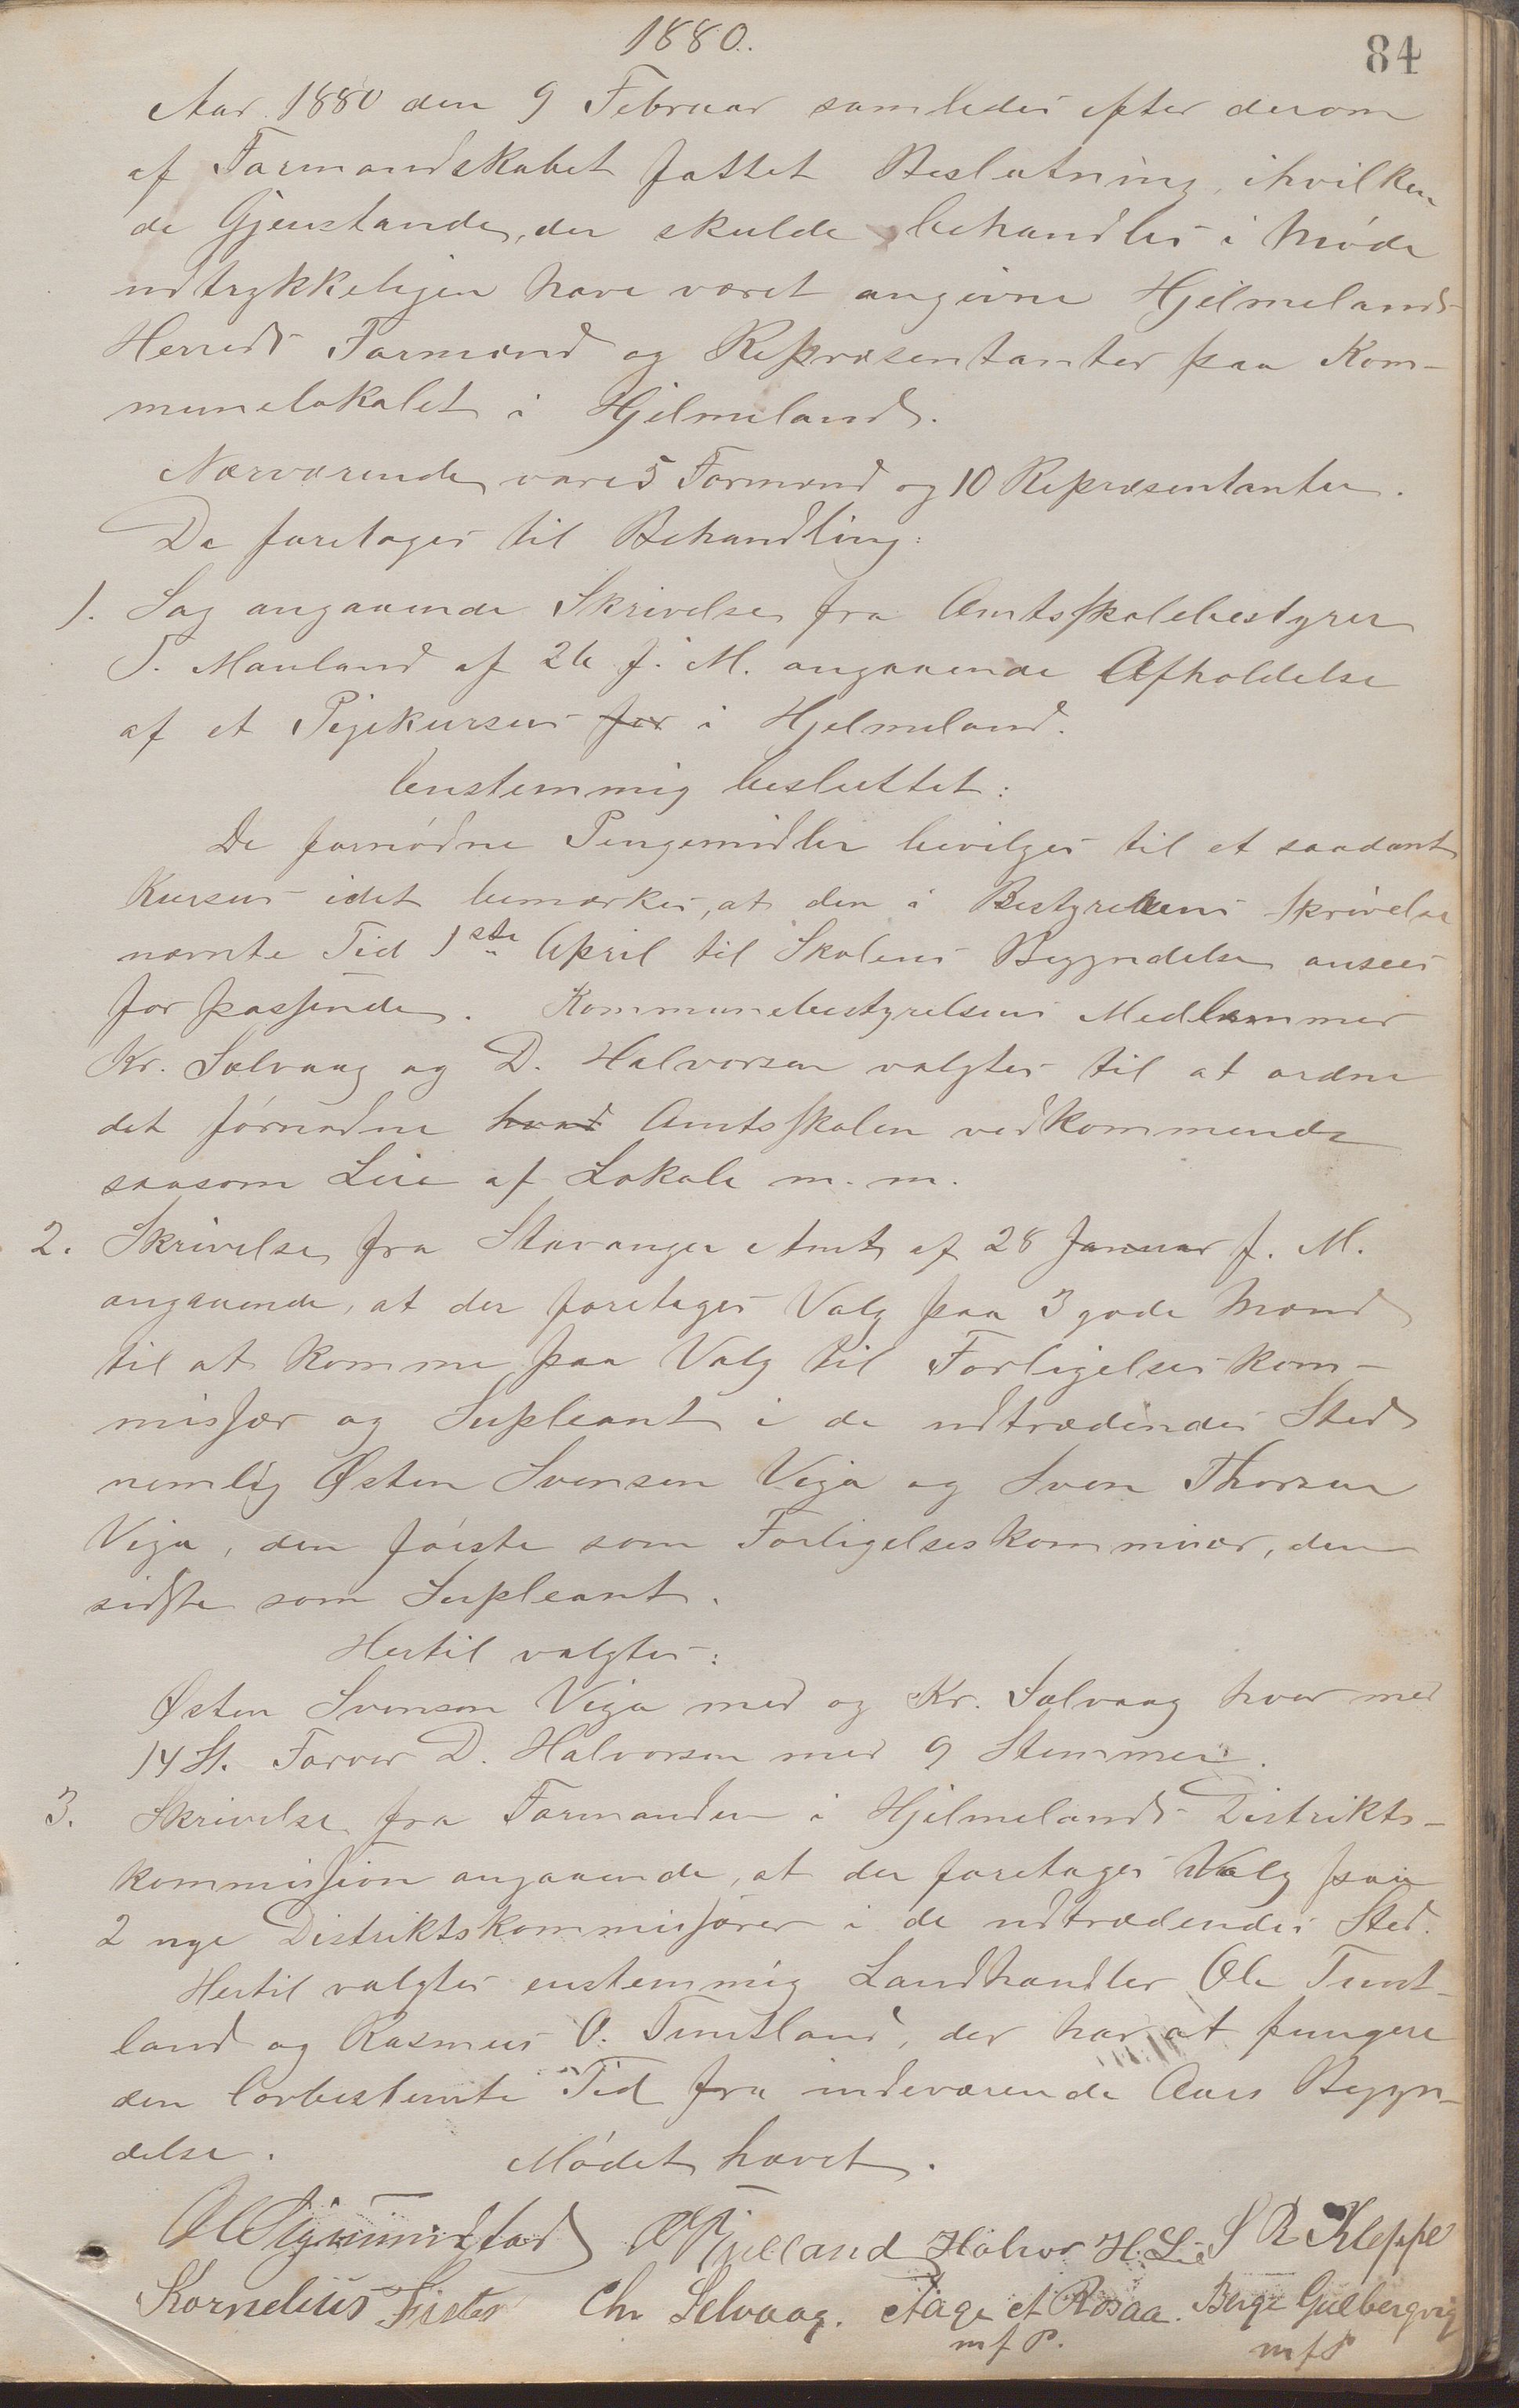 1880.
84
Aar 1880 den 9 Februar samledes efter derom
af Formandskabet fattet Beslutning, ihvilken
de Gjenstande, der skulde behandles i Møde
udtrykkeligen have været angivne Hjelmelands
Herreds Formænd og Repræsentanter paa Kom-
munelokalet i Hjelmeland.
Nærværende vare 5 Formænd og 10 Repræsentanter.
De foretoges til Behandling:
1. Sag angaaende Skrivelse fra Amtsskolebestyrer
T. Mauland af 26 f. M. angaaende Afholdelse
af et Pigekursus for i Hjelmeland.
Enstemmig besluttet:
De fornødne Pengemidler bevilges til et saadant
Kursus idet bemærkes, at den i Bestyrerens Skrivelse
nævnte Tid 1ste April til Skolens Begyndelse ansees
for passende. Kommunebestyrelsens Medlemmer
Kr. Sælvaag og D. Halvorsen valgtes til at ordne
det fornødne hvad Amtsskolen vedkommende
saasom Leie af Lokale m. m.
2. Skrivelse fra Stavanger Amt af 28 Januar f. M.
angaaende, at der foretages Valg paa 3 gode Mænd
til at komme paa Valg til Forligelseskom-
missær og Supleant i de udtrædendes Sted
nemlig Østen Svensen Viga og Sven Thorsen
Viga, den første som Forligelseskommissær, den
sidste som Supleant.
Hertil valgtes:
Østen Svenson Viga med og Kr. Sælvaag hver med
14 St. Farver D. Halvorsen med 9 Stemmer.
3. Skrivelse fra Formanden i Hjelmelands Distrikts-
kommission angaaende, at der foretages Valg paa
2 nye Distriktskommissærer i de udtrædendes Sted.
Hertil valgtes enstemmig Landhandler Ole Tunt-
land og Rasmus O. Tuntland, der har at fungere
den lovbestemte Tid fra indeværende Aars Begyn-
delse.
Mødet hævet.
Sigmundstad Fjelland Halvor H. Lie S R Kleppe
Kornelius Fister Chr Selvaag. Aage A Rosaa. Berge Gulbergvig
m f P. m f P